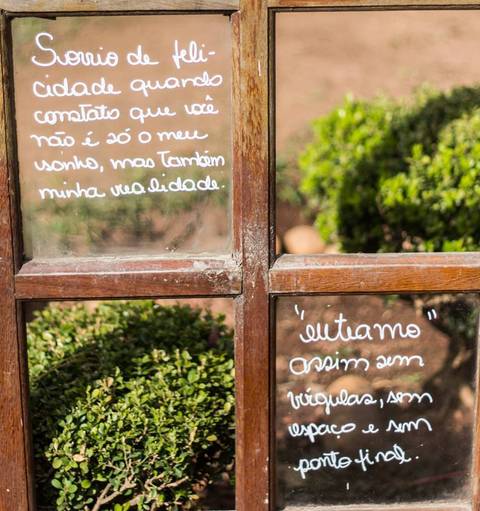 Sorrio de feli-
cidade quando
constato que você
não é só o meu
sonho, mas também
minha realidade.
"euteamo"
assim sem
vírgulas, sem
espaço e sem
ponto final.